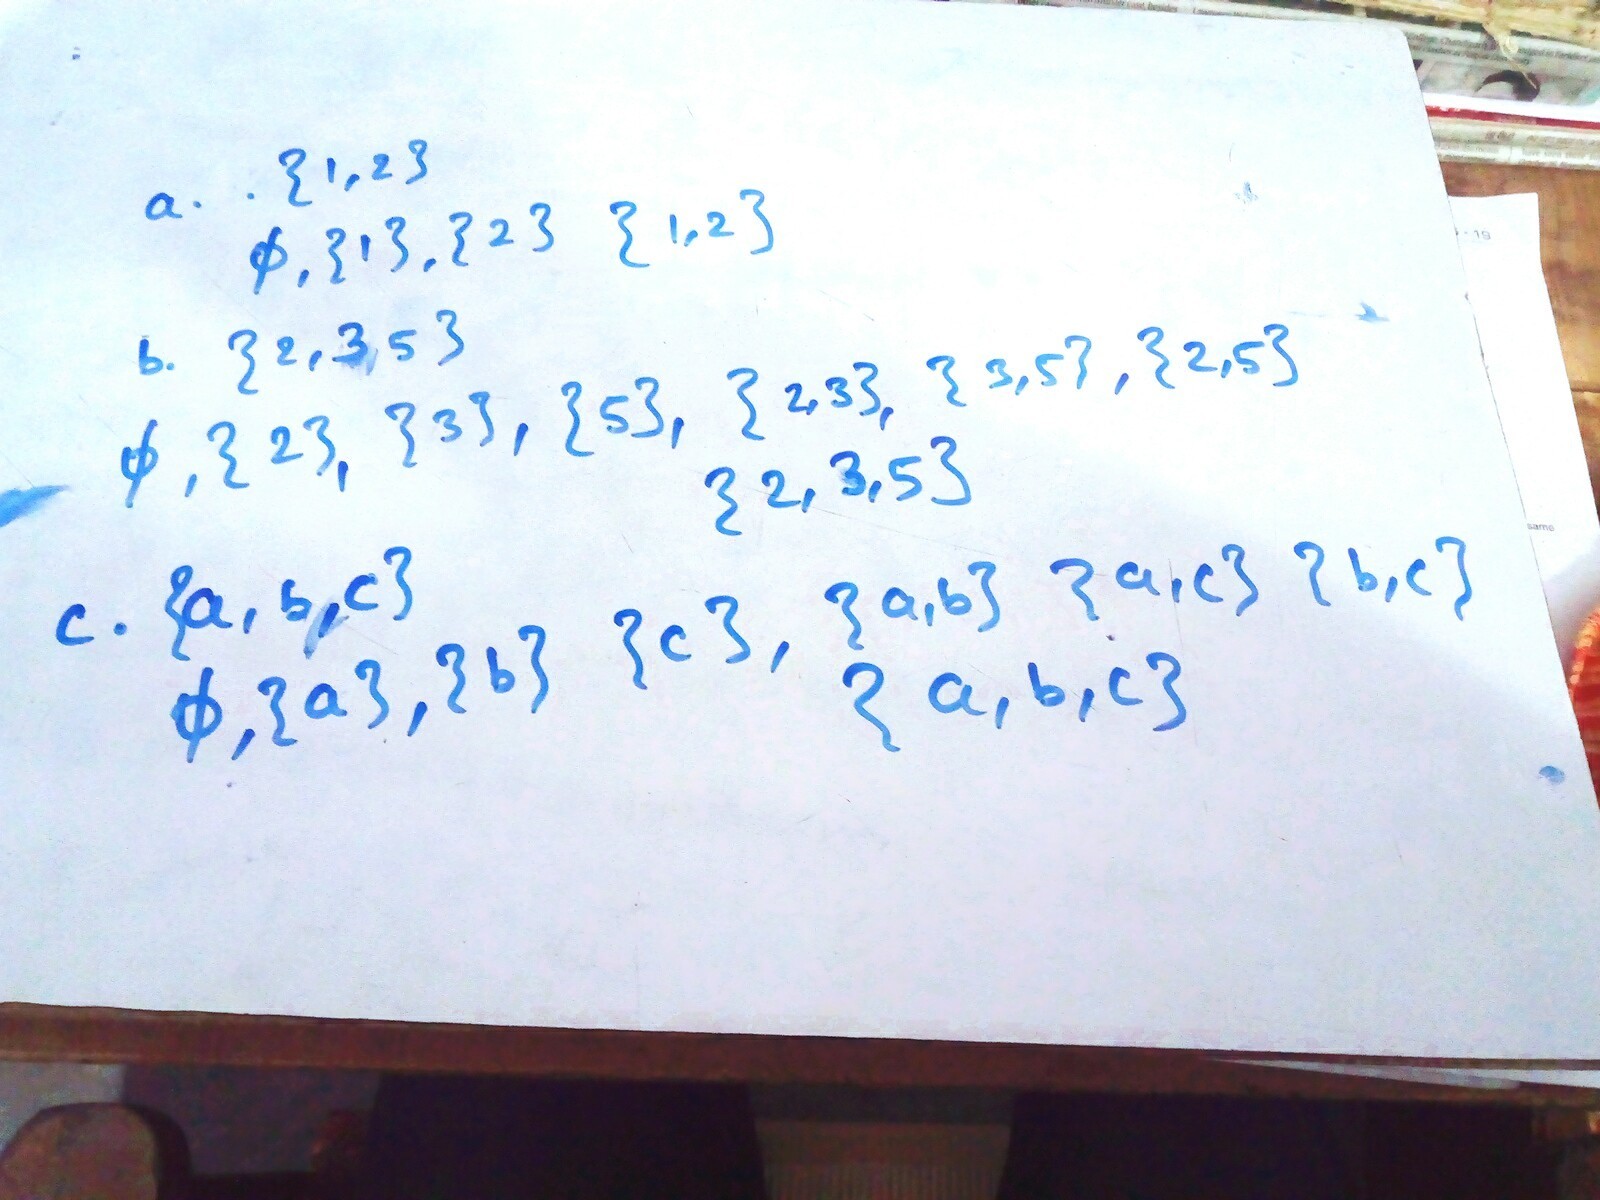 a. . {1,2}
φ, {1}, {2} {1,2}
b. {2,3,5}
φ, {2}, {3}, {5}, {2,3}, {3,5}, {2,5}
{2,3,5}
c. {a, b, c}
φ, {a}, {b} {c}, {a,b} {a,c} {b,c}
{a, b, c}